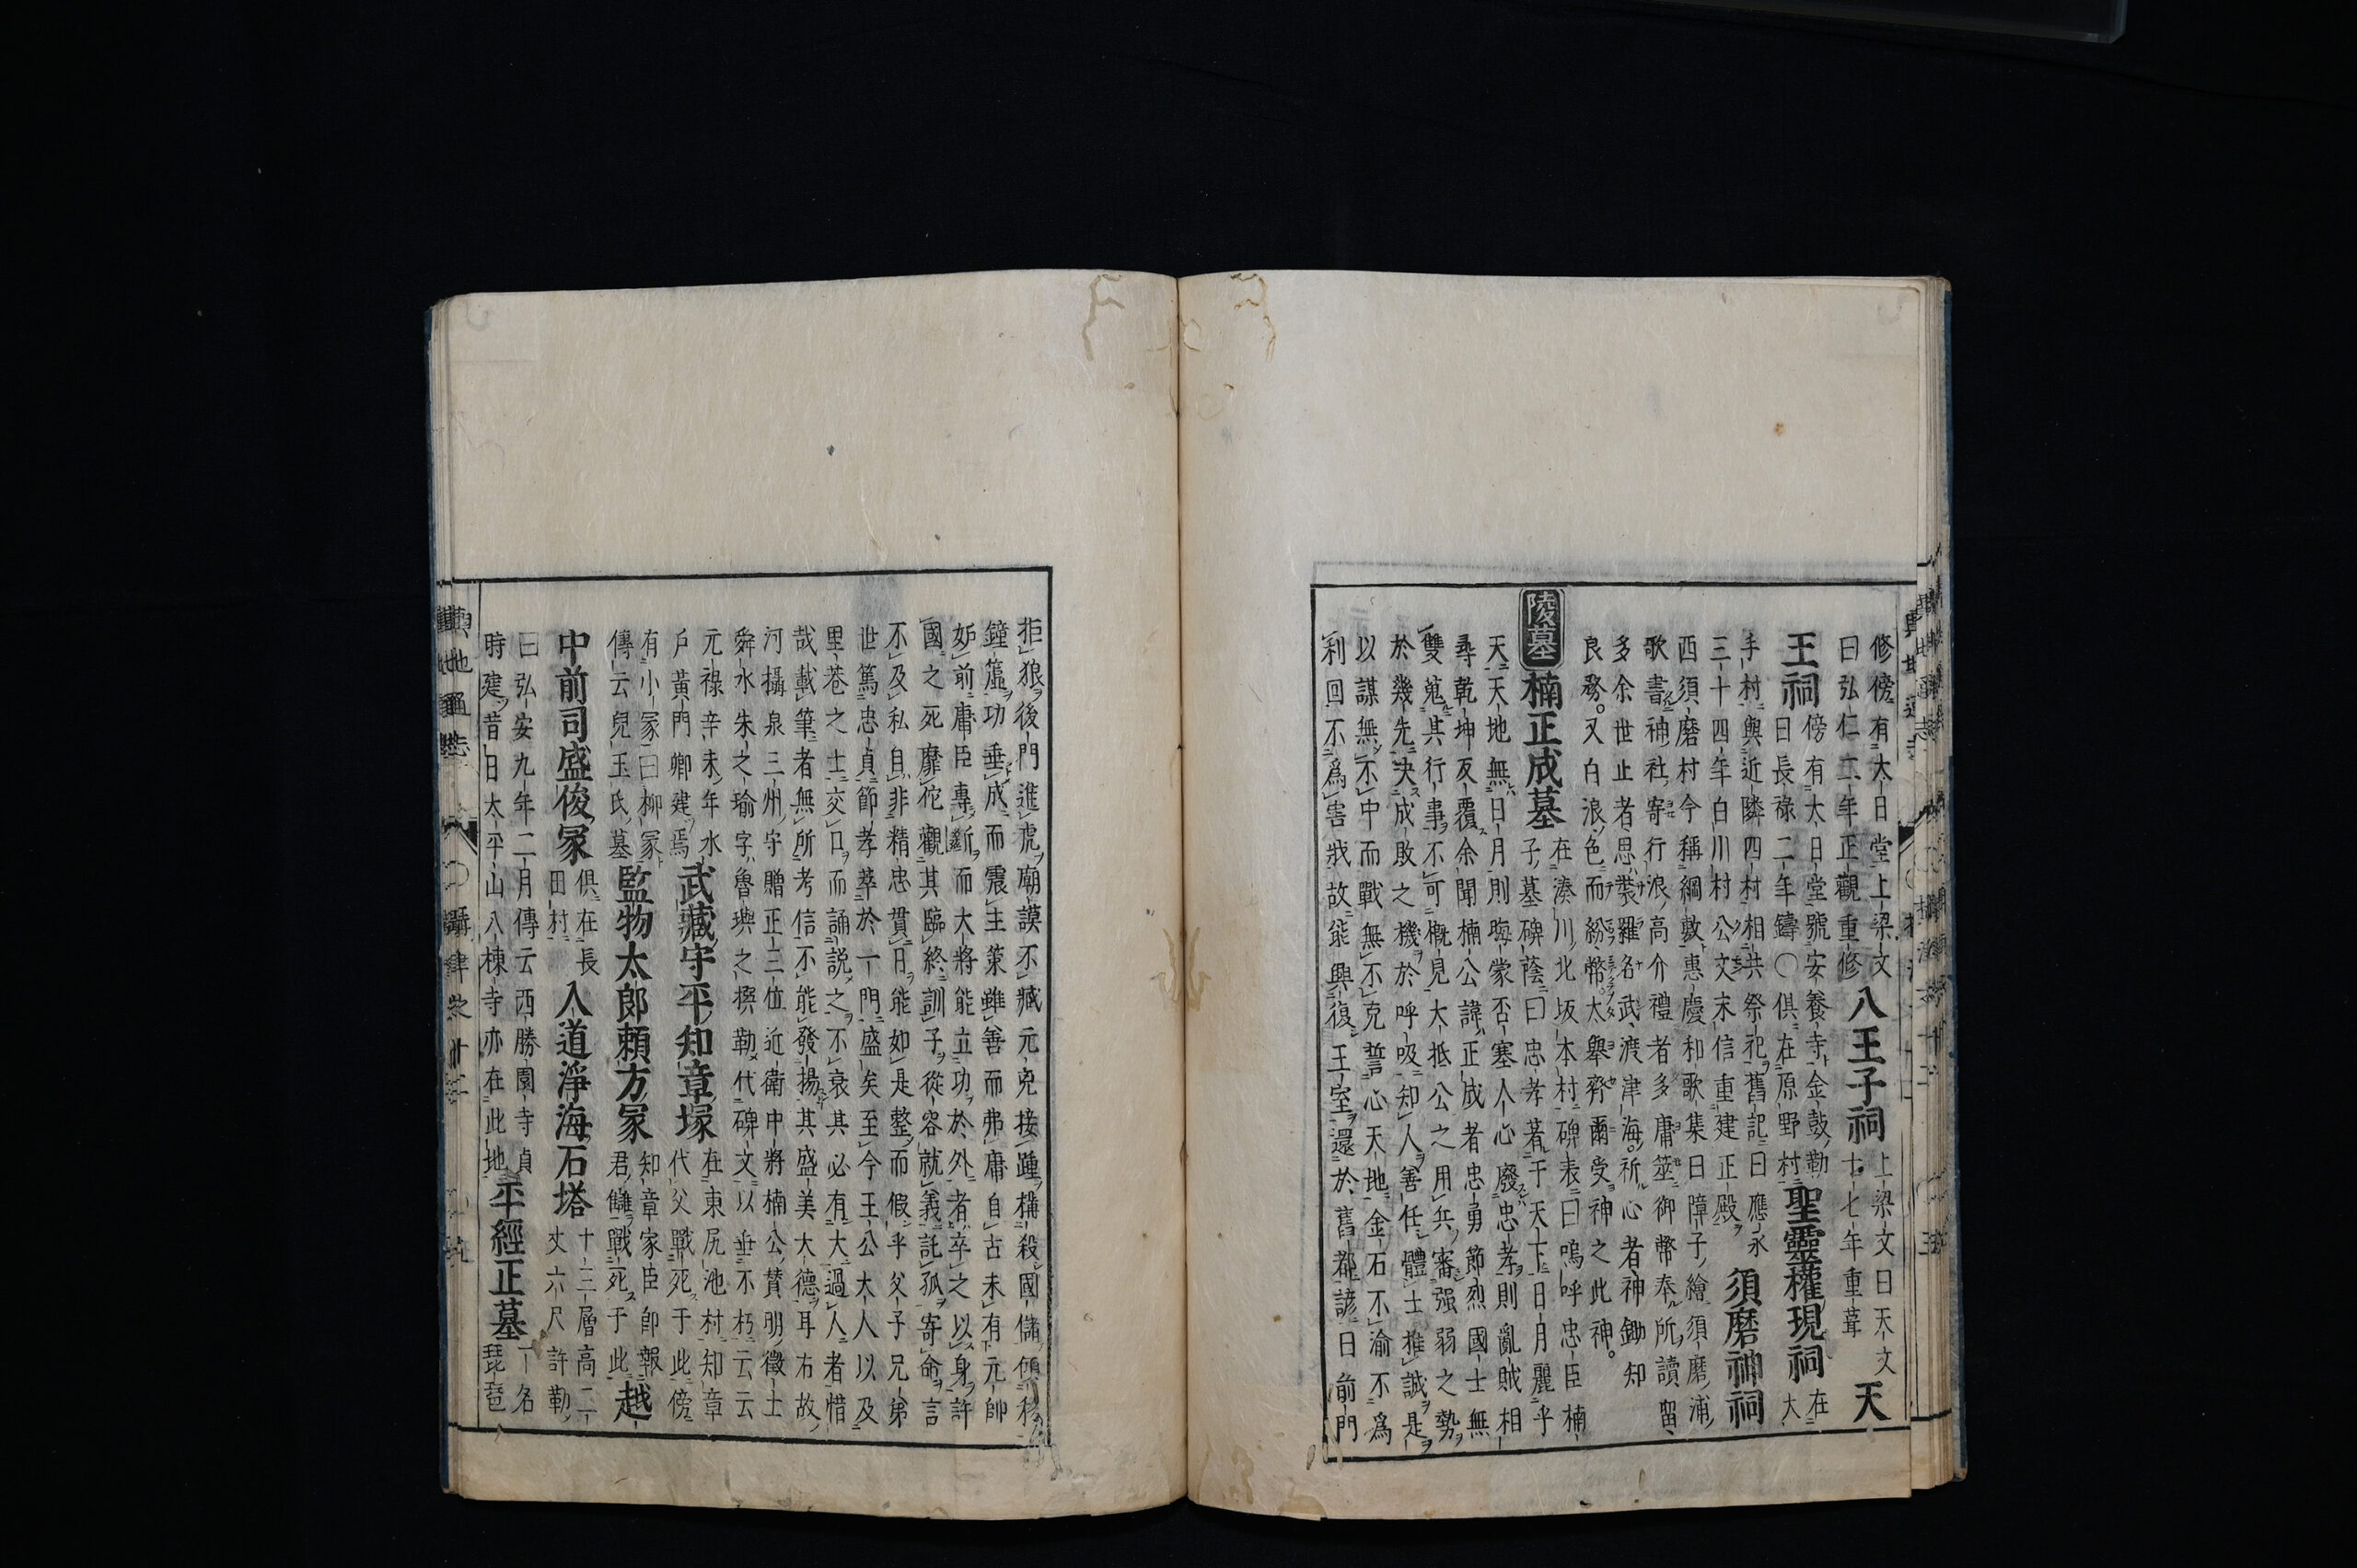 修傍有大日堂上梁文
曰弘仁二年正觀重修八王子祠上梁文曰天文
十七年重葺天
王祠傍有大日堂號安養寺金鼓勒
曰長祿二年鑄〇俱在原野村聖靈權現祠在
大
手村與近隣四村相共祭祀舊記曰應永
三十四年白川村公文末信重建正殿須磨神祠
西須磨村今稱綱敷惠慶和歌集曰障子繪須磨浦
歌書神社寄行浪高介禮者多庸筮御幣奉所讀留
多余世止者思裳羅名武渡津海祈心者神鋤知
良務。又白浪色而紛幣太擧齊爾受神之此神。
陵墓楠正成墓在湊川北坂本村碑表曰嗚呼忠臣楠
子墓碑蔭曰忠孝著于天下日月麗乎
天天地無日月則晦蒙否塞人心廢忠孝則亂賊相
尋乾坤反覆余聞楠公諱正成者忠勇節烈國士無
雙蒐其行事不可概見大抵公之用兵審强弱之勢
於幾先決成敗之機於呼吸知人善任體士推誠是
以謀無不中而戰無不克誓心天地金石不渝不爲
利回不爲害㦲故能興復王室還於舊都諺曰前門
拒狼後門進虎廟謨不臧元兇接踵構殺國儲傾移
鐘簴功垂成而震主策雖善而弗庸自古未有元帥
妒前庸臣專斷而大將能立功於外者卒之以身許
國之死靡佗觀其臨終訓子從容就義託孤寄命言
不及私自非精忠貫日能如是整而假乎父子兄弟
世篤忠貞節孝萃於一門盛矣至今王公大人以及
里巷之士交口而誦説之不衰其必有大過人者惜
哉載筆者無所考信不能發揚其盛美大德耳右故
河攝泉三州守贈正三位近衛中將楠公贊明徵士
舜水朱之瑜字魯璵之撰勒代碑文以垂不朽云云
元祿辛未年水
戶黃門卿建焉武藏守平知章塚在東尻池村知章
代父戰死于此傍
有小冢曰柳冢
傳云兒玉氏墓監物太郎賴方冢知章家臣卽報
君讎戰死于此越
中前司盛俊冢俱在長
田村入道淨海石塔十三層高二
丈六尺許勒
曰弘安九年二月傳云西勝園寺貞
時建昔日太平山八棟寺亦在此地平經正墓一名
琵琶